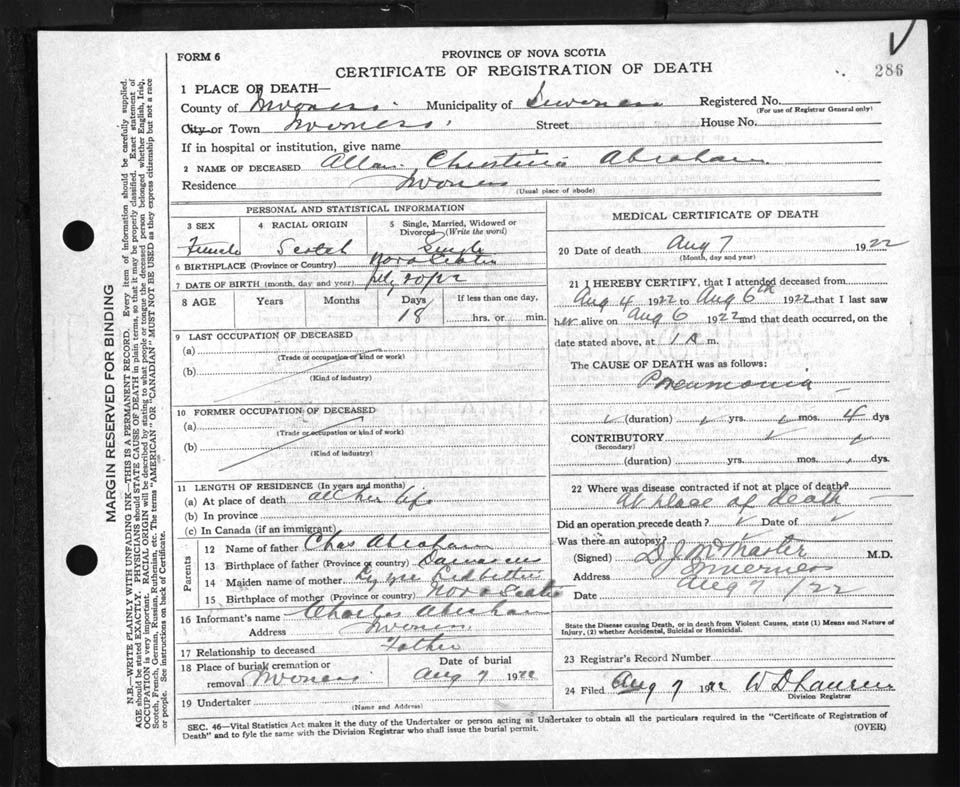 FORM 6
PROVINCE OF NOVA SCOTIA
CERTIFICATE OF REGISTRATION OF DEATH
286
1 PLACE OF DEATH—
County of Inverness. Municipality of Inverness Registered No.
(For use of Registrar General only)
City or Town Inverness Street House No.
If in hospital or institution, give name
2 NAME OF DECEASED Allan Christina Abraham
Residence Inverness
(Usual place of abode)
PERSONAL AND STATISTICAL INFORMATION
3 SEX 4 RACIAL ORIGIN 5 Single, Married, Widowed or Divorced (Write the word)
Female Scotch Single
6 BIRTHPLACE (Province or Country) Nova Scotia
7 DATE OF BIRTH (month, day and year) July 20
8 AGE Years Months Days If less than one day,
18 hrs. or min.
9 LAST OCCUPATION OF DECEASED
(a)
(Trade or occupation or kind of work)
(b)
(Kind of industry)
10 FORMER OCCUPATION OF DECEASED
(a)
(Trade or occupation or kind of work)
(b)
(Kind of industry)
11 LENGTH OF RESIDENCE (In years and months)
(a) At place of death all her life
(b) In province
(c) In Canada (if an immigrant)
Parents
12 Name of father Chas Abraham
13 Birthplace of father (Province or country) Damascus
14 Maiden name of mother
15 Birthplace of mother (Province or country) Nova Scotia
16 Informant's name Charles Abraham
Address Inverness
17 Relationship to deceased Father
18 Place of burial, cremation or removal Inverness Date of burial Aug 7 1922
19 Undertaker
(Name and Address)
MEDICAL CERTIFICATE OF DEATH
20 Date of death Aug 7 1922
(Month, day and year)
21 I HEREBY CERTIFY, that I attended deceased from
Aug 4 1922 to Aug 6th 1922 that I last saw
her alive on Aug 6 1922 and that death occurred, on the
date stated above, at 1 A m.
The CAUSE OF DEATH was as follows:
Pneumonia
(duration) yrs. mos. 4 dys
CONTRIBUTORY
(Secondary)
(duration) yrs. mos. dys.
22 Where was disease contracted if not at place of death?
At place of death
Did an operation precede death? Date of
Was there an autopsy?
(Signed) D J McMaster M.D.
Address Inverness
Date Aug 7 /22
State the Disease causing Death, or in death from Violent Causes, state (1) Means and Nature of Injury, (2) whether Accidental, Suicidal or Homicidal.
23 Registrar's Record Number
24 Filed Aug 7 1922 W D
Division Registrar
SEC. 46—Vital Statistics Act makes it the duty of the Undertaker or person acting as Undertaker to obtain all the particulars required in the "Certificate of Registration of
Death" and to fyle the same with the Division Registrar who shall issue the burial permit.
(OVER)
MARGIN RESERVED FOR BINDING
N.B.—WRITE PLAINLY WITH UNFADING INK—THIS IS A PERMANENT RECORD. Every item of information should be carefully supplied.
AGE should be stated EXACTLY. PHYSICIANS should STATE CAUSE OF DEATH in plain terms, so that it may be properly classified. Exact statement of
OCCUPATION is very important. RACIAL ORIGIN will be described by stating to what people or tongue the deceased person belonged whether English, Irish,
Scotch, French, German, Russian, Ruthenian, etc. The terms "AMERICAN" OR "CANADIAN" MUST NOT BE USED as they express citizenship but not a race
or people. See instructions on back of Certificate.